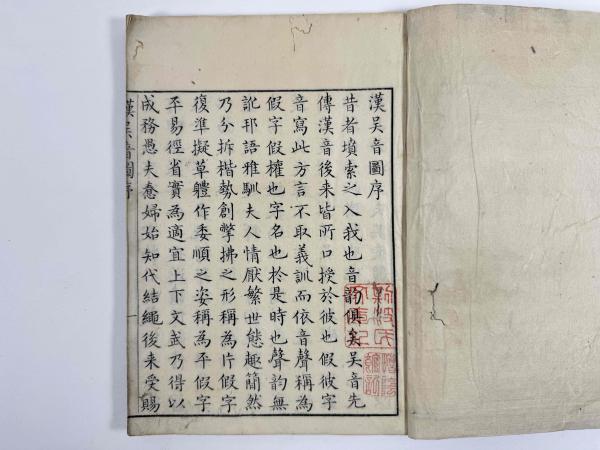 漢吴音圖序
昔者墳索之入我也音韵俱矣吴音先
傳漢音後来皆所口授於彼也假彼字
音寫此方言不取義訓而依音聲稱為
假字假權也字名也於是時也聲韵無
訛邦語雅馴夫人情厭繁世態趣簡然
乃分拆楷勢創擎拂之形稱為片假字
復準擬草軆作委順之姿稱為平假字
平易徑省實為適宜上下文武乃得以
成務愚夫惷婦始知代結繩後来受賜
漢吴音圖序
一